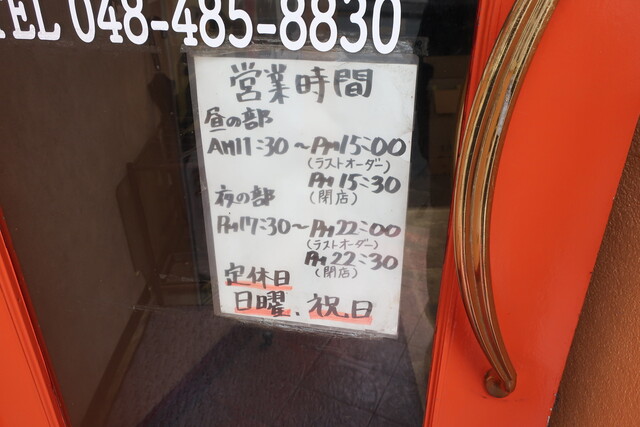 TEL 048-485-8830
営業時間
昼の部
AM11:30～PM15:00
(ラストオーダー)
PM15:30
(閉店)
夜の部
PM17:30～PM22:00
(ラストオーダー)
PM22:30
(閉店)
定休日
日曜、祝日